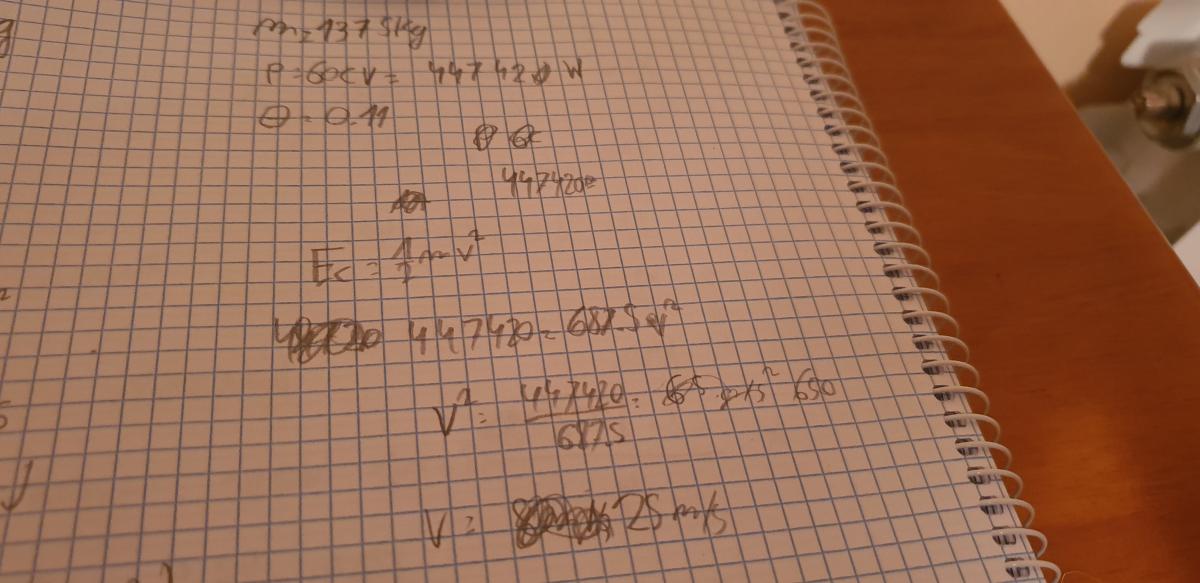 m = 1375 kg
P = 60 CV = 447420 W
Θ = 0.11
447420
Ec = 1/2 m v²
447420 = 687.5 v²
V² = 447420/687.5 = 650
V = 25 m/s